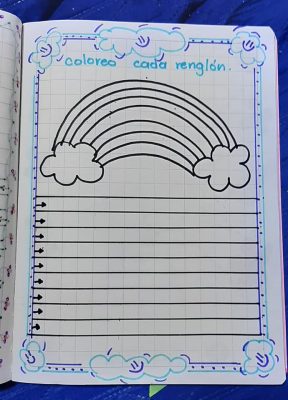 coloreo cada renglón.